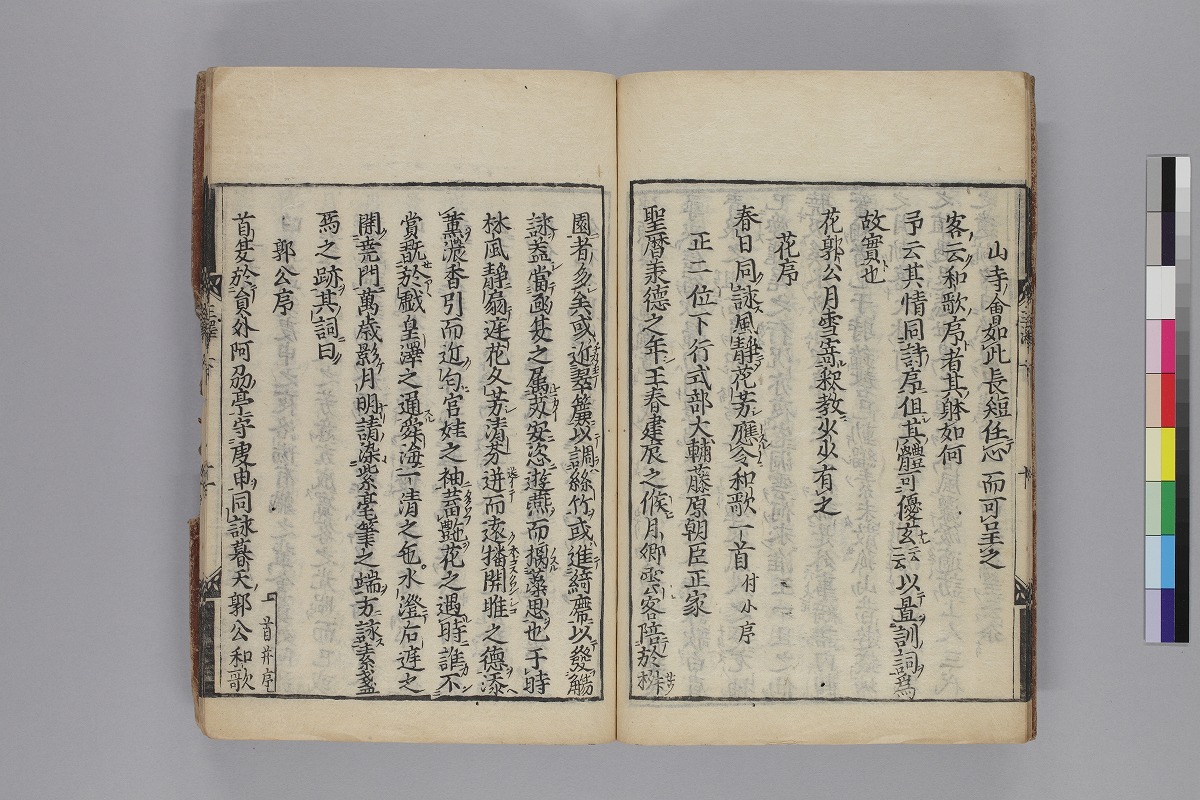 山寺會如此長短任心而可呈之
客云和歌序者其躰如何
予云其情同詩序但其體可優玄云云以直訓詞為
故實也
花郭公月雪寄釈教少少有之
花序
春日同詠風靜花芳應令和歌一首付小序
正二位下行式部大輔藤原朝臣正家
聖曆兼德之年王春建辰之候月卿雲客陪於桃
園者多矣或近翠簾以調絲竹或進綺席以發觴
詠蓋當函夏之屬安恣遊燕而摛藻思也于時
林風靜扇遲花久芳清芬迸而遠播開雎之德添
薰濃香引而近匂官娃之袖蓄艷花之遇時誰不
賞翫於戲皇澤之通舜海一清之色水澄石遲之
開堯門萬歲影月明請染紫毫筆之端方詠素盞
焉之跡其詞曰
郭公序
首夏於員外阿州亭守庚申同詠暮天郭公和歌
一首并序